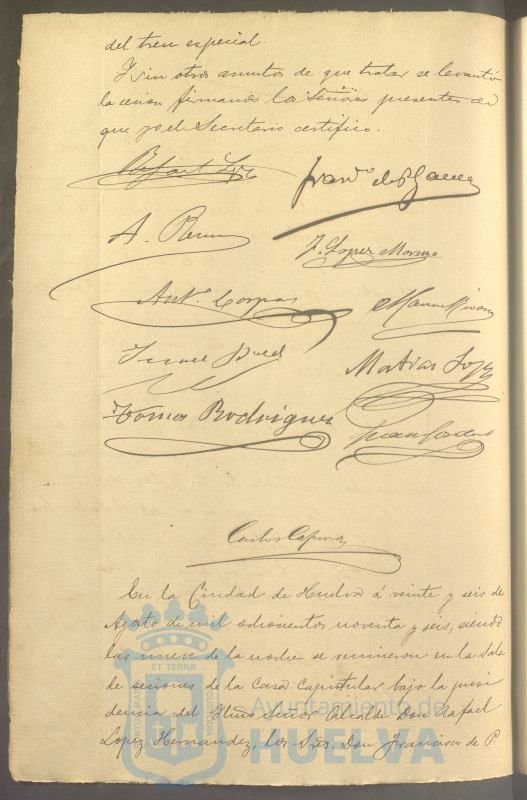 del tren especial.
Y sin otros asuntos de que tratar se levantó
la sesion firmando los Señores presentes de
que yo el Secretario certifico.
Rafael López
Fran.co de P.
A.
J. Lopez Moreno
Ant.o Corpas
Matias Lopez
Tomas Rodriguez
Juan
Carlos
En la Ciudad de Huelva á veinte y seis de
Agosto de mil ochocientos noventa y seis, siendo
las nueve de la noche se reunieron en la Sala
de sesiones de la Casa Capitular bajo la presi
dencia del Iltmo Señor Alcalde Don Rafael
Lopez Hernandez, los Sres. Don Francisco de P.
ET TERRÆ
Ayuntamiento de
HUELVA